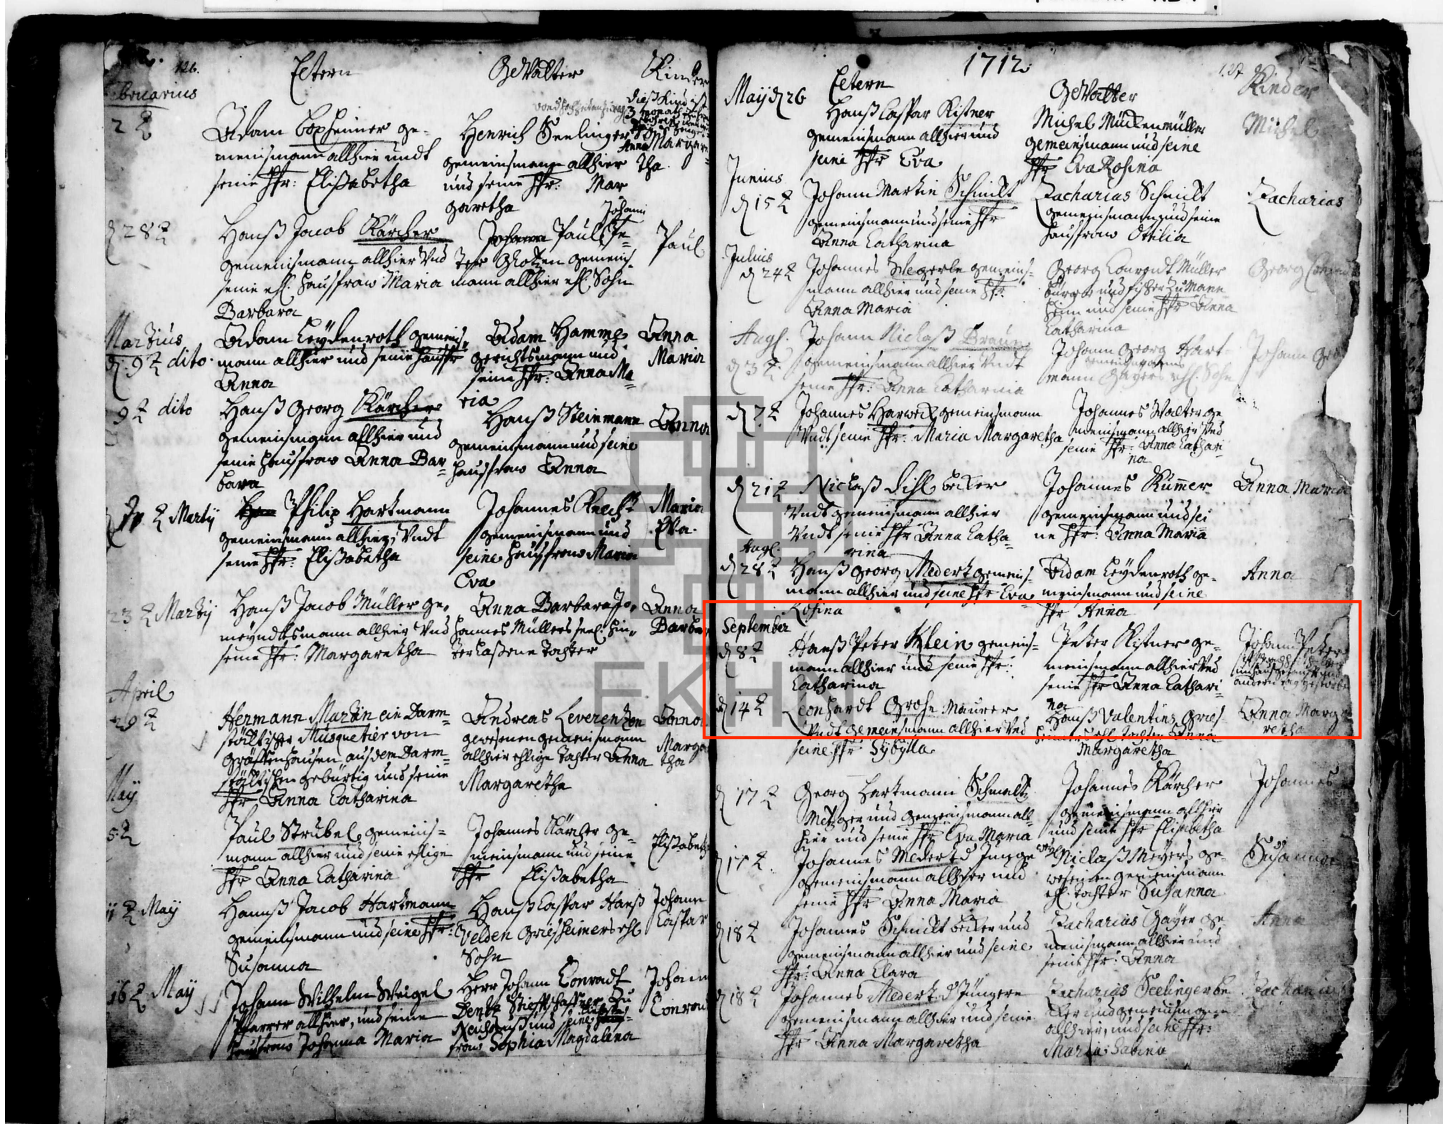 126.
Eltern
Gevatter
Kinder
bruarius
Adam Boxheimer ge-
meinsmann allhier undt
seine fr: Elisabetha
Henrich Seelinger
gemeinsmann allhier
und seine fr: Mar
garetha
Anna Margare
tha
d 28
Hanß Jacob Kärcher
gemeinsmann allhier Und
seine ehl. haußfraw Maria
Barbara
Johann
Paul
mann allhier ehl. Sohn
Paul
Martius
d. 9 dito
Adam Leydenroth gemeins
mann allhier und seine haußfr
Anna
Adam Hamme
gerichtsmann und
seine fr: Anna Ma
ria
Anna
Maria
9 dito
Hanß Georg Kärcher
gemeinsmann allhier und
seine haußfraw Anna Bar
bara
Hanß Steinmann
gemeinsmann und seine
haußfraw Anna
Anna
Marty
Philip Hartmann
gemeinsmann allhier, Undt
seine fr: Elisabetha
Johannes Knecht
gemeinsmann und
seine haußfraw Maria
Eva
Maria
Eva.
23 Marty
Hanß Jacob Müller ge-
meyndtsmann allhier Und
seine fr: Margaretha
Anna Barbara Jo-
hannes Müllers seel. hin-
terlaßene Tochter
Anna
Barbar
April
29
Hermann Martin ein Darm-
stättischer Musquetier von
Gräffenhausen, aus dem Darm-
stättischen gebürtig und seine
fr: Anna Catharina
Andreas Leverenden
gewesenen gemeinsmann
allhier ehlige Tochter Anna
Margaretha
Anna
Marga
tha
May
5
Paul Strubel, gemeins-
mann allhier und seine ehlige
fr: Anna Catharina
Johannes Kärcher ge-
meinsmann und seine
fr: Elisabetha
Elisabeth
May
Hannß Jacob Hartmann
gemeinsmann und seine fr:
Susanna
Hanß Caspar Hanß
Velden Griesheimers ehl
Sohn
Johann
Caspar
16 May
Johann Wilhelm Weigel
Pfarrer allhier, und seine
haußfraw Johanna Maria
Herr Johann Conradt
fraw Sophia Magdalena
Johann
Conrad
1712
127
Eltern
Gevatter
Kinder
May d 26
Hanß Caspar Kistner
gemeinsmann allhier und
seine fr: Eva
Michel Mückenmüller
gemeinsmann und seine
fr: Eva Rosina
Michel
Junius
d 15
Johann Martin Schmidt
gemeinsmann und seine fr
Anna Catharina
Zacharias Schmidt
gemeinsmann und seine
haußfraw Otilia
Zacharias
Julius
d 24
Johannes Wegerle gemeins-
mann allhier und seine fr:
Anna Maria
Georg Conradt Müller
burger und fischer zu Mann
heim und seine fr: Anna
Catharina
Georg Conra
Aug.
d 3
Johann Niclaß Braun
gemeinsmann allhier Undt
seine fr: Anna Catharina
Johann Georg Hart-
mann
Johann Geo
d 7
Johannes Harweck gemeinsmann
Undt seine fr: Maria Margaretha
Johannes Walter ge
meinsmann allhier Und
seine fr: Anna Cathari
na
d 21
Niclaß Diehl becker
Undt gemeinsmann allhier
Undt seine fr Anna Catha-
rina
Johannes Kumer
gemeinsmann und sei
ne fr: Anna Maria
Anna Maria
Aug.
d 28
Hanß Georg Medert gemeins-
mann allhier und seine fr: Eva
Rosina
Adam Leydenroth ge-
meinsmann und seine
fr Anna
Anna
September
d 8
Hanß Peter Klein gemeins-
mann allhier und seine fr:
Catharina
Peter Kistner ge-
meinsmann allhier Und
seine fr Anna Cathari-
na
Johann Peter
d 14
Leonhardt Grohe Maurer
Undt gemeinsmann allhier Und
seine fr Sybylla
Hanß Valentins Gries-
heimers ehl. Tochter Anna
Margaretha
Anna Marga
retha
d 17
Georg Hartmann Schmaltz
Metzger und gemeinsmann all-
hier und seine fr Eva Maria
Johannes Kärcher
gemeinsmann allhier
und seine fr Elisabetha
Johannes
d 17
Johannes Medert d Junge
gemeinsmann allhier und
seine fr Anna Maria
Niclaß Meyers ge
wesenen gemeinsmann
ehl. Tochter Susanna
Susanna
d 18
Johannes Schmidt becker und
gemeinsmann allhier und seine
fr: Anna Clara
Zacharias Gayer ge
meinsmann allhier und
seine fr: Anna
Anna
d 18
Johannes Medert d Jüngere
gemeinsmann allhier und seine
fr Anna Margaretha
Zacharias Seelinger be
cker und gemeinsmann
allhier, und seine fr:
Maria Sabina
Zacharia
EKHN